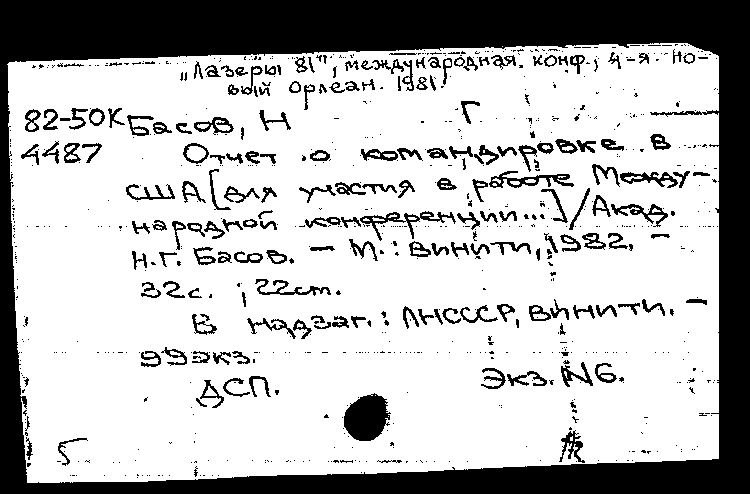 „Лазеры 81", международная. конф., 4-я. Но-
вый Орлеан. 1981.
82-50К Басов, Н Г
4487 Отчет о командировке в
США [для участия в работе Между-
народной конференции...] / Акад.
Н.Г. Басов. – М.: ВИНИТИ, 1982. –
32с. ; 22см.
В надзаг.: АНСССР, ВИНИТИ. –
99экз.
ДСП. Экз. №6.
5